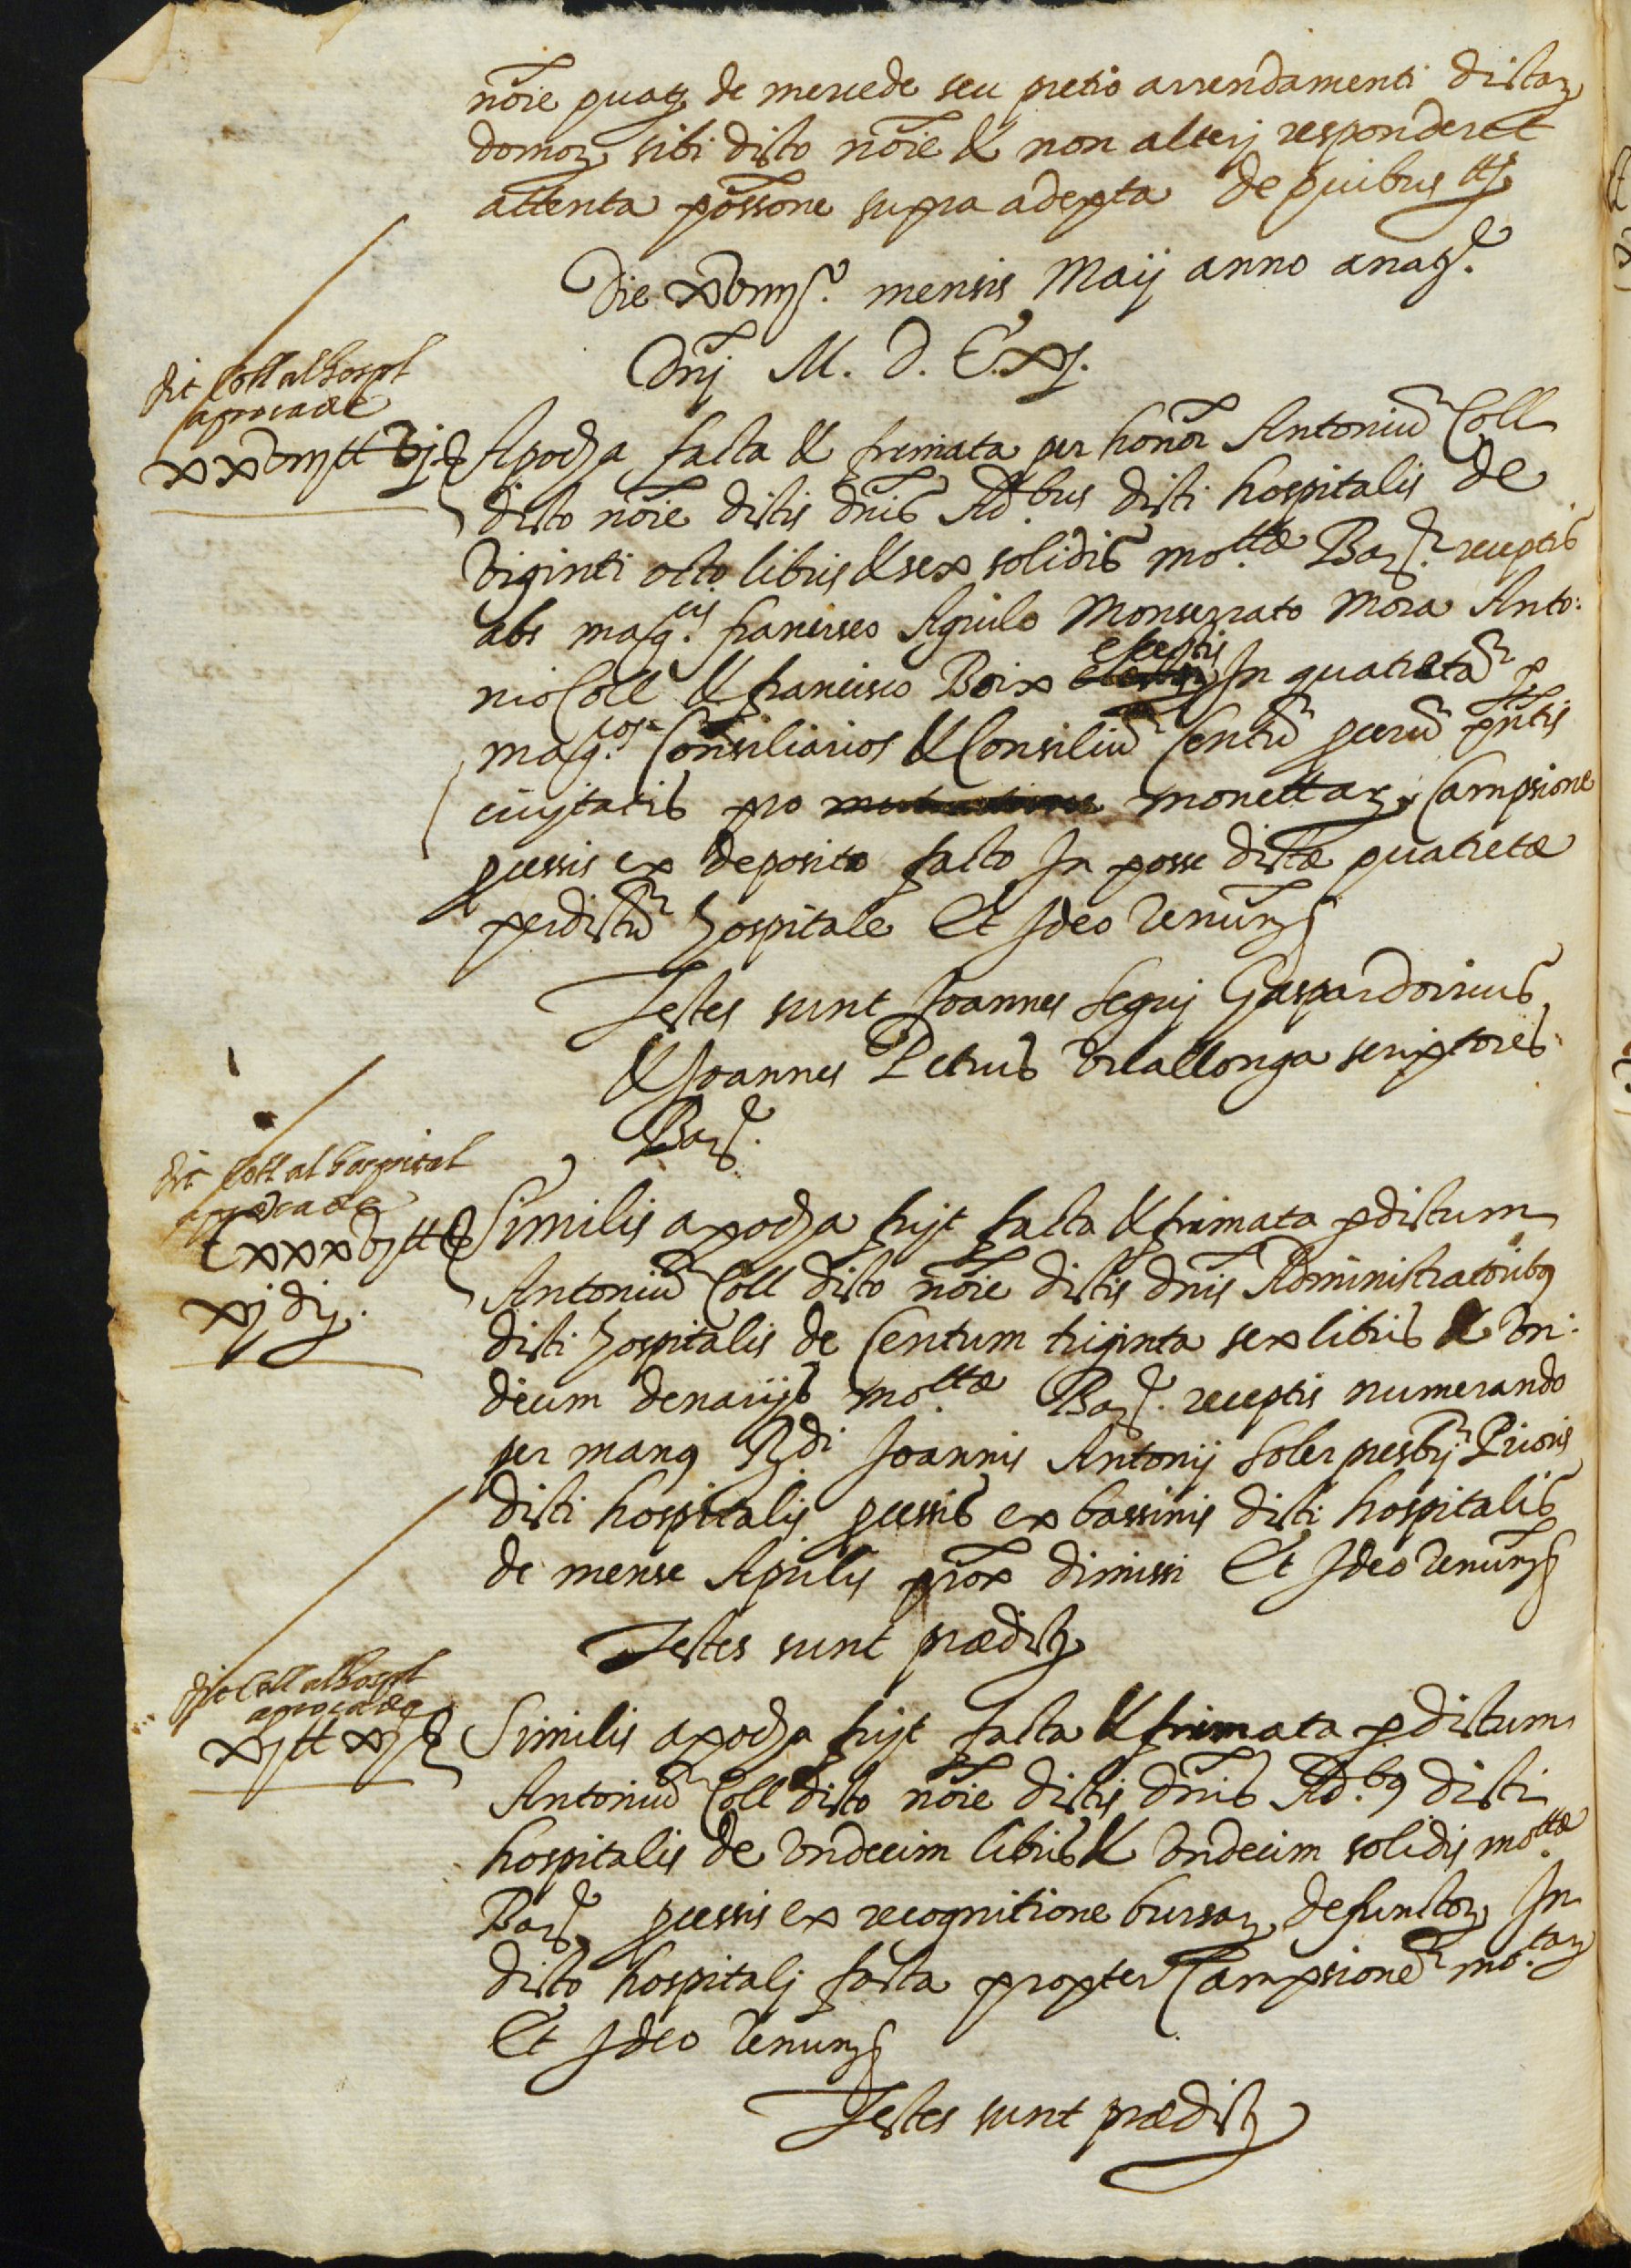 nõie quaɋ de mercede seu pretio arrendamenti dictaꝝ
domoꝝ sibi dicto nõie & non alterj responderet
attenta possone supra adepta de quibus ett.ª
Die xviiijº. mensis Maij anno a natᵉ.
Dnj M. D. C. xj.
dit Coll al hospl
apoca de
xxviij tt vj s
Apocha facta & firmata per honor Antoniũ Coll
dicto nõie dictis dnis Ad.bus dicti hospitalis de
viginti octo libris & sex solidis mo.ttæ Barᵉ. receptis
abs mag.cis francisco Aguilo Monserrato Mora Anto:
nio Coll & francisco Boix electis In quatretã ꝑ
mag.cos Consiliarios & Consiliũ Centũ ꝓcerũ pñtis
ciujtatis pro monettaꝝ Campsione
ꝓcessis ex deposito facto In posse dictæ quatretæ
per dictũ hospitale Et Ideo Renũn.
Testes sunt Joannes Seguj Gaspar Doirius
& Joannes Petrus Vilallonga scriptores
Barᵉ.
dit Coll al hospital
apoca de
Cxxxvj tt
xj dj.
Similis apocha fujt facta & firmata ꝑ dictum
Antoniũ Coll dicto nõie dictis dnis Administratoribꝰ
dicti hospitalis de Centum triginta sex libris & vn:
decim denarijs mo.ttæ Barᵉ. receptis numerando
per manꝰ Rdi Joannis Antonij Soler presbrj Prioris
dicti hospitalis ꝓcessis ex bassinis dicti hospitalis
de mense Aprilis prox dimissi Et Ideo Renũn.
Testes sunt prædicti
dit Coll al hospl
apoca de
xj tt xj s
Similis apocha fujt facta & firmata ꝑ dictum
Antoniũ Coll dicto nõie dictis dnis Ad.bꝰ dicti
hospitalis de vndecim libris & vndecim solidis mo.ttæ
Barᵉ ꝓcessis ex recognitione bursaꝝ defunctoꝝ In
dicto hospitalj facta propter Campsionẽ mo.taꝝ
Et Ideo Renũn.
Testes sunt prædicti